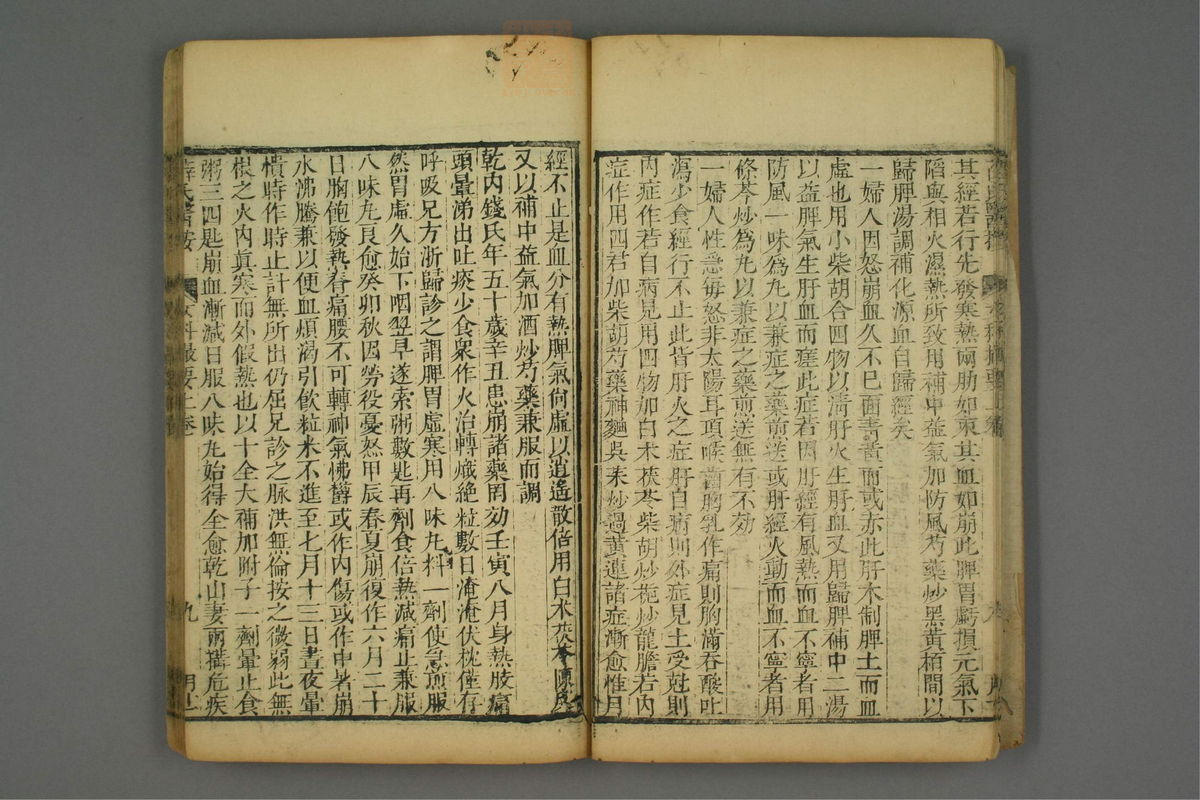 其經若行先發寒熱兩肋如束其血如崩此脾胃虧損元氣下
陷與相火濕熱所致用補中益氣加防風芍藥炒黑黃栢間以
歸脾湯調補化源血自歸經矣
一婦人因怒崩血久不已面青黃而或赤此肝木制脾土而血
虛也用小柴胡合四物以清肝火生肝血又用歸脾補中二湯
以益脾氣生肝血而瘥此症若因肝經有風熱而血不寧者用
防風一味爲丸以兼症之藥煎送或肝經火動而血不寧者用
條芩炒爲丸以兼症之藥煎送無有不効
一婦人性急每怒非太陽耳項喉齒胸乳作痛則胸滿吞酸吐
瀉少食經行不止此皆肝火之症肝自病則外症見土受尅則
內症作若自病見用四物加白木茯苓柴胡炒梔炒龍膽若內
症作用四君加柴胡芍藥神麯吳茱炒過黃連諸症漸愈惟月
經不止是血分有熱脾氣尙虛以逍遙散倍用白木茯苓陳皮
又以補中益氣加酒炒芍藥兼服而調
乾內錢氏年五十歲辛丑患崩諸藥罔効壬寅八月身熱肢痛
頭暈涕出吐痰少食衆作火治轉熾絶粒數日淹淹伏枕僅存
呼吸兄方浙歸診之謂脾胃虛寒用八味丸料一劑使急煎服
然胃虛久始下咽翌早遂索粥數匙再劑食倍熱減痛止兼服
八味丸良愈癸卯秋因勞役憂怒甲辰春夏崩復作六月二十
日胸飽發熱脊痛腰不可轉神氣怫欝或作內傷或作中暑崩
水沸騰兼以便血煩渴引飲粒米不進至七月十三日晝夜暈
憒時作時止計無所出仍屈兄診之脉洪無倫按之微弱此無
根之火內眞寒而外假熱也以十全大補加附子一劑暈止食
粥三四匙崩血漸減日服八味丸始得全愈乾山妻兩搆危疾
薛氏醫按
女科最要上卷
九